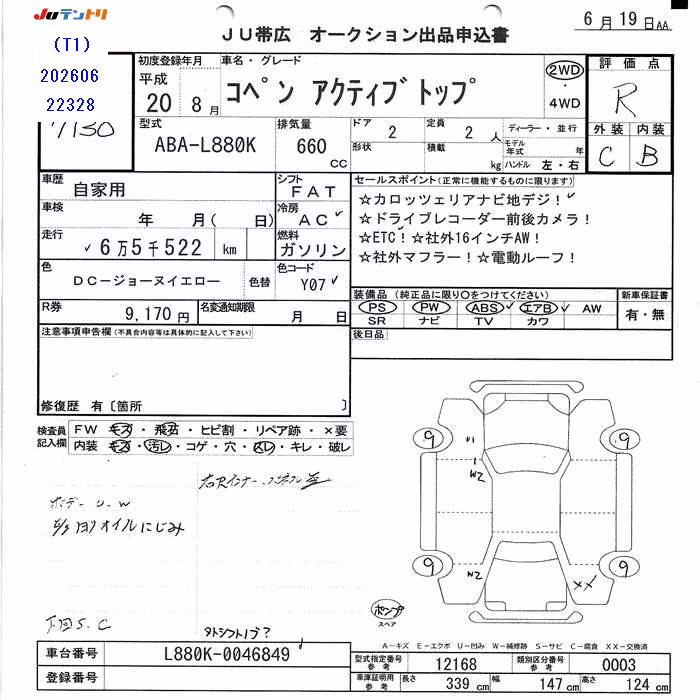 JUテントリ
(T1)
202606
22328
JU帯広 オークション出品申込書
6月19日AA
初度登録年月
平成
20 8月
車名・グレード
コペン アクティブトップ
2WD
・
4WD
評価点
R
外装 内装
C B
型式
ABA-L880K
排気量
660
CC
ドア
2
定員
2 人
形状
積載
kg
ディーラー・並行
モデル年式 年
ハンドル 左・右
車歴
自家用
シフト
FAT
車検
年 月( 日)
冷房
AC
走行
6万5千522 km
燃料
ガソリン
色
DC-ジョーヌイエロー
色替
色コード
Y07
R券
9,170 円
名変通知期限
月 日
セールスポイント(正常に機能するものに限ります)
☆カロッツェリアナビ地デジ!
☆ドライブレコーダー前後カメラ!
☆ETC!☆社外16インチAW!
☆社外マフラー!☆電動ルーフ!
装備品(純正品に限り○をつけてください)
PS PW ABS エアB AW
SR ナビ TV カワ
新車保証書
有・無
後日品
注意事項申告欄(不具合内容等は具体的に記入して下さい)
修復歴 有〔箇所 〕
検査員記入欄
FW キズ・飛石・ヒビ割・リペア跡・×要
内装 キズ・汚レ・コゲ・穴・スレ・キレ・破レ
ボデー U.W
オイルにじみ
下回S.C
タトシフトノブ?
9 9
U1
1
W2
9 9
W2
××
スペア
A-キズ E-エクボ U-凹み W-補修跡 S-サビ C-腐食 XX-交換済
車台番号
L880K-0046849
登録番号
型式指定番号 参考
12168
類別区分番号 参考
0003
車庫証明用 参考
長さ 339 cm
幅 147 cm
高さ 124 cm